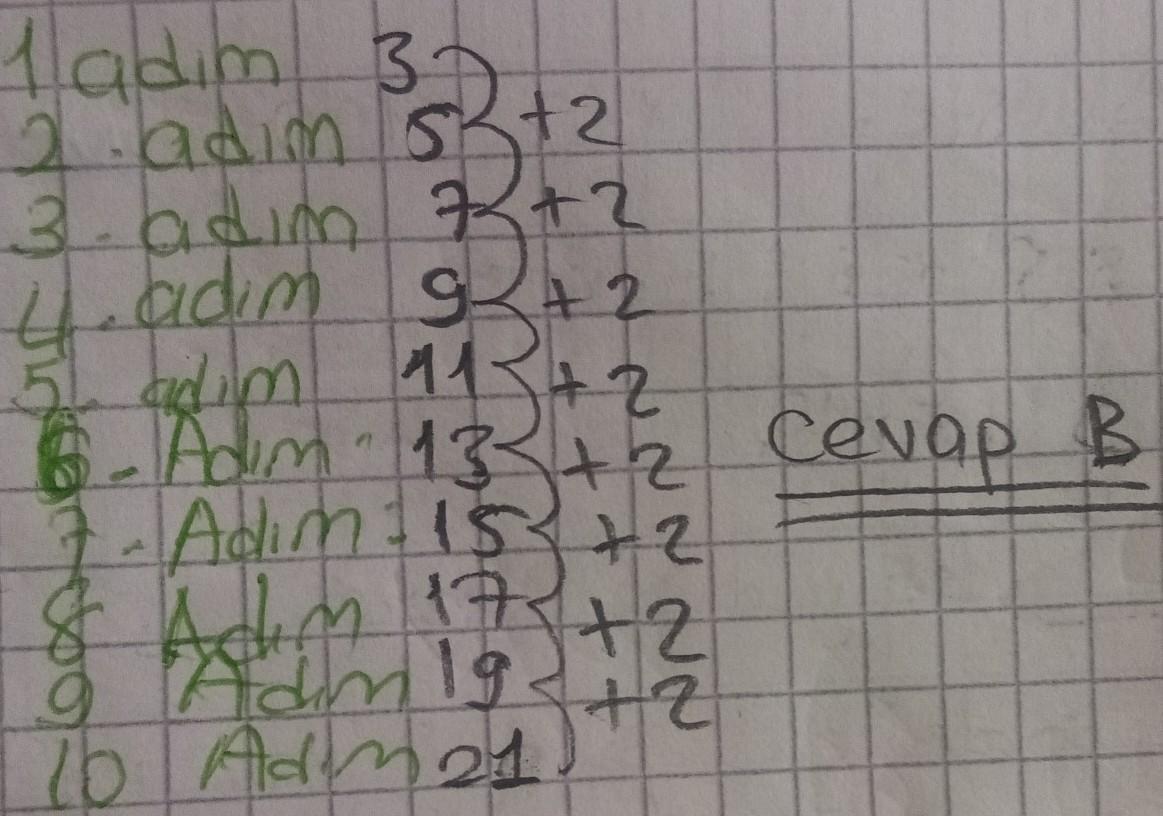 1 adım 3
2. adım 5 +2
3. adım 7 +2
4. adım 9 +2
5. adım 11 +2
6 - Adım 13 +2
7 - Adım: 15 +2
8 Adım 17 +2
9 Adım 19 +2
10 Adım 21
Cevap B